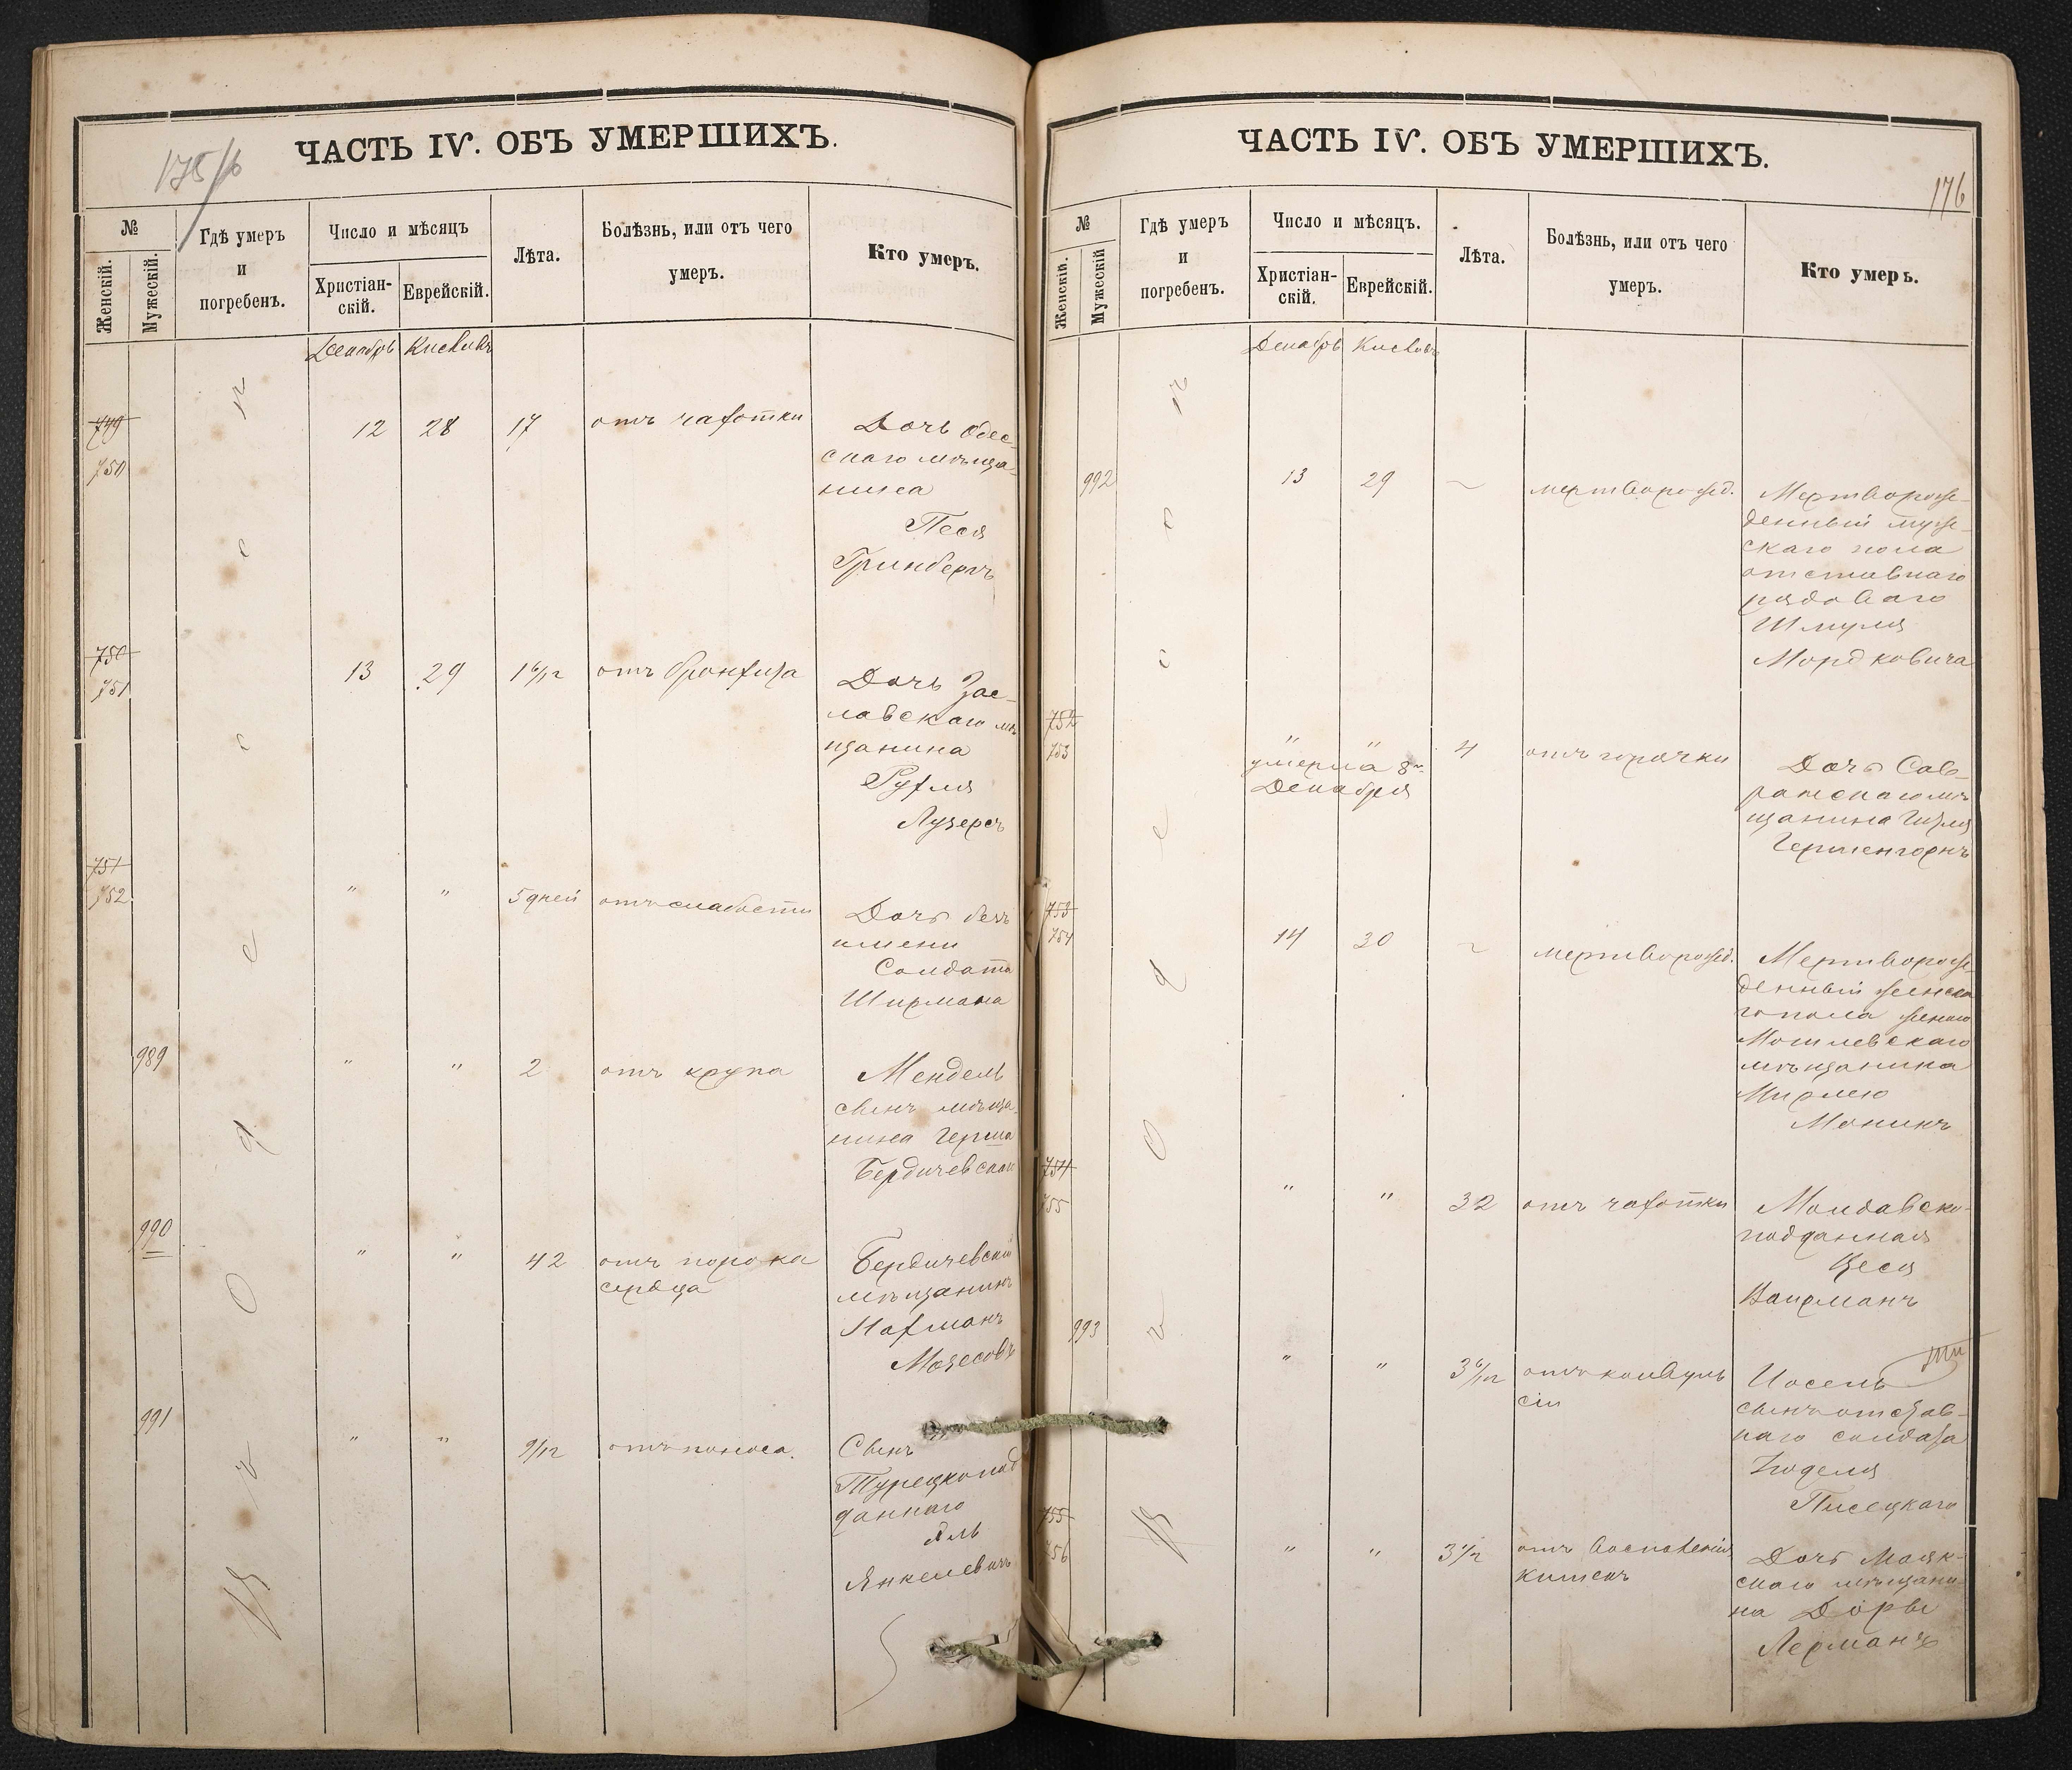 ЧАСТЬ IV. ОБЪ УМЕРШИХЪ.
№
Женскій.
Мужескій.
Гдѣ умеръ
и
погребенъ.
Число и мѣсяцъ
Христіан-
скій.
Еврейскій.
Лѣта.
Болѣзнь, или отъ чего
умеръ.
Кто умеръ.
Декабрь Кислевъ
749
750
12 28 17 отъ чахотки
Дочь Одес-
скаго мѣща-
нина
Песя
Гринбергъ
750
751
13 29 1 6/12 отъ бронхита
Дочь Зас-
лавскаго мѣ
щанина
Рухля
Лузеръ
751
752
" " 5 дней отъ слабости
Дочь безъ
имени
Солдата
Ширмана
989
" " 2 отъ крупа
Мендель
сынъ мѣща-
нина Герша
Бердичевскаго
990
" " 42 отъ порока
сердца
Бердичевскій
мѣщанинъ
Нахманъ
991
" " 9/12 отъ поноса.
Сынъ
Турецкопод
даннаго
Янкелевичъ
Одесса
ЧАСТЬ IV. ОБЪ УМЕРШИХЪ.
176
№
Женскій.
Мужескій
Гдѣ умеръ
и
погребенъ.
Число и мѣсяцъ.
Христіан-
скій.
Еврейскій.
Лѣта.
Болѣзнь, или отъ чего
умеръ.
Кто умеръ.
Декабрь Кислевъ
992
13 29 — мертворожд.
Мертворож-
денный муж-
скаго пола
отставнаго
рядоваго
Шмуля
Мордковича
752
753
" " 4 отъ горячки
умерла 8го
Декабря
Дочь Сав-
ранскаго мѣ
щанина Гизля
Гершенгорнъ
753
754
14 30 ~ мертворожд.
Мертворож-
денный женска
го пола
Могилевскаго
мѣщанина
754
755
" " 32 отъ чахотки
Молдавско-
подданная
Цеся
Вайсманъ
993
" " 3 6/12 отъ конвуль
сіи
Иосель
сынъ отстав-
наго солдата
Писецкаго
755
756
" " 3 1/2 отъ воспаленія
кишекъ
Дочь Маяк-
скаго мѣщани-
на Дорвы
Лерманъ